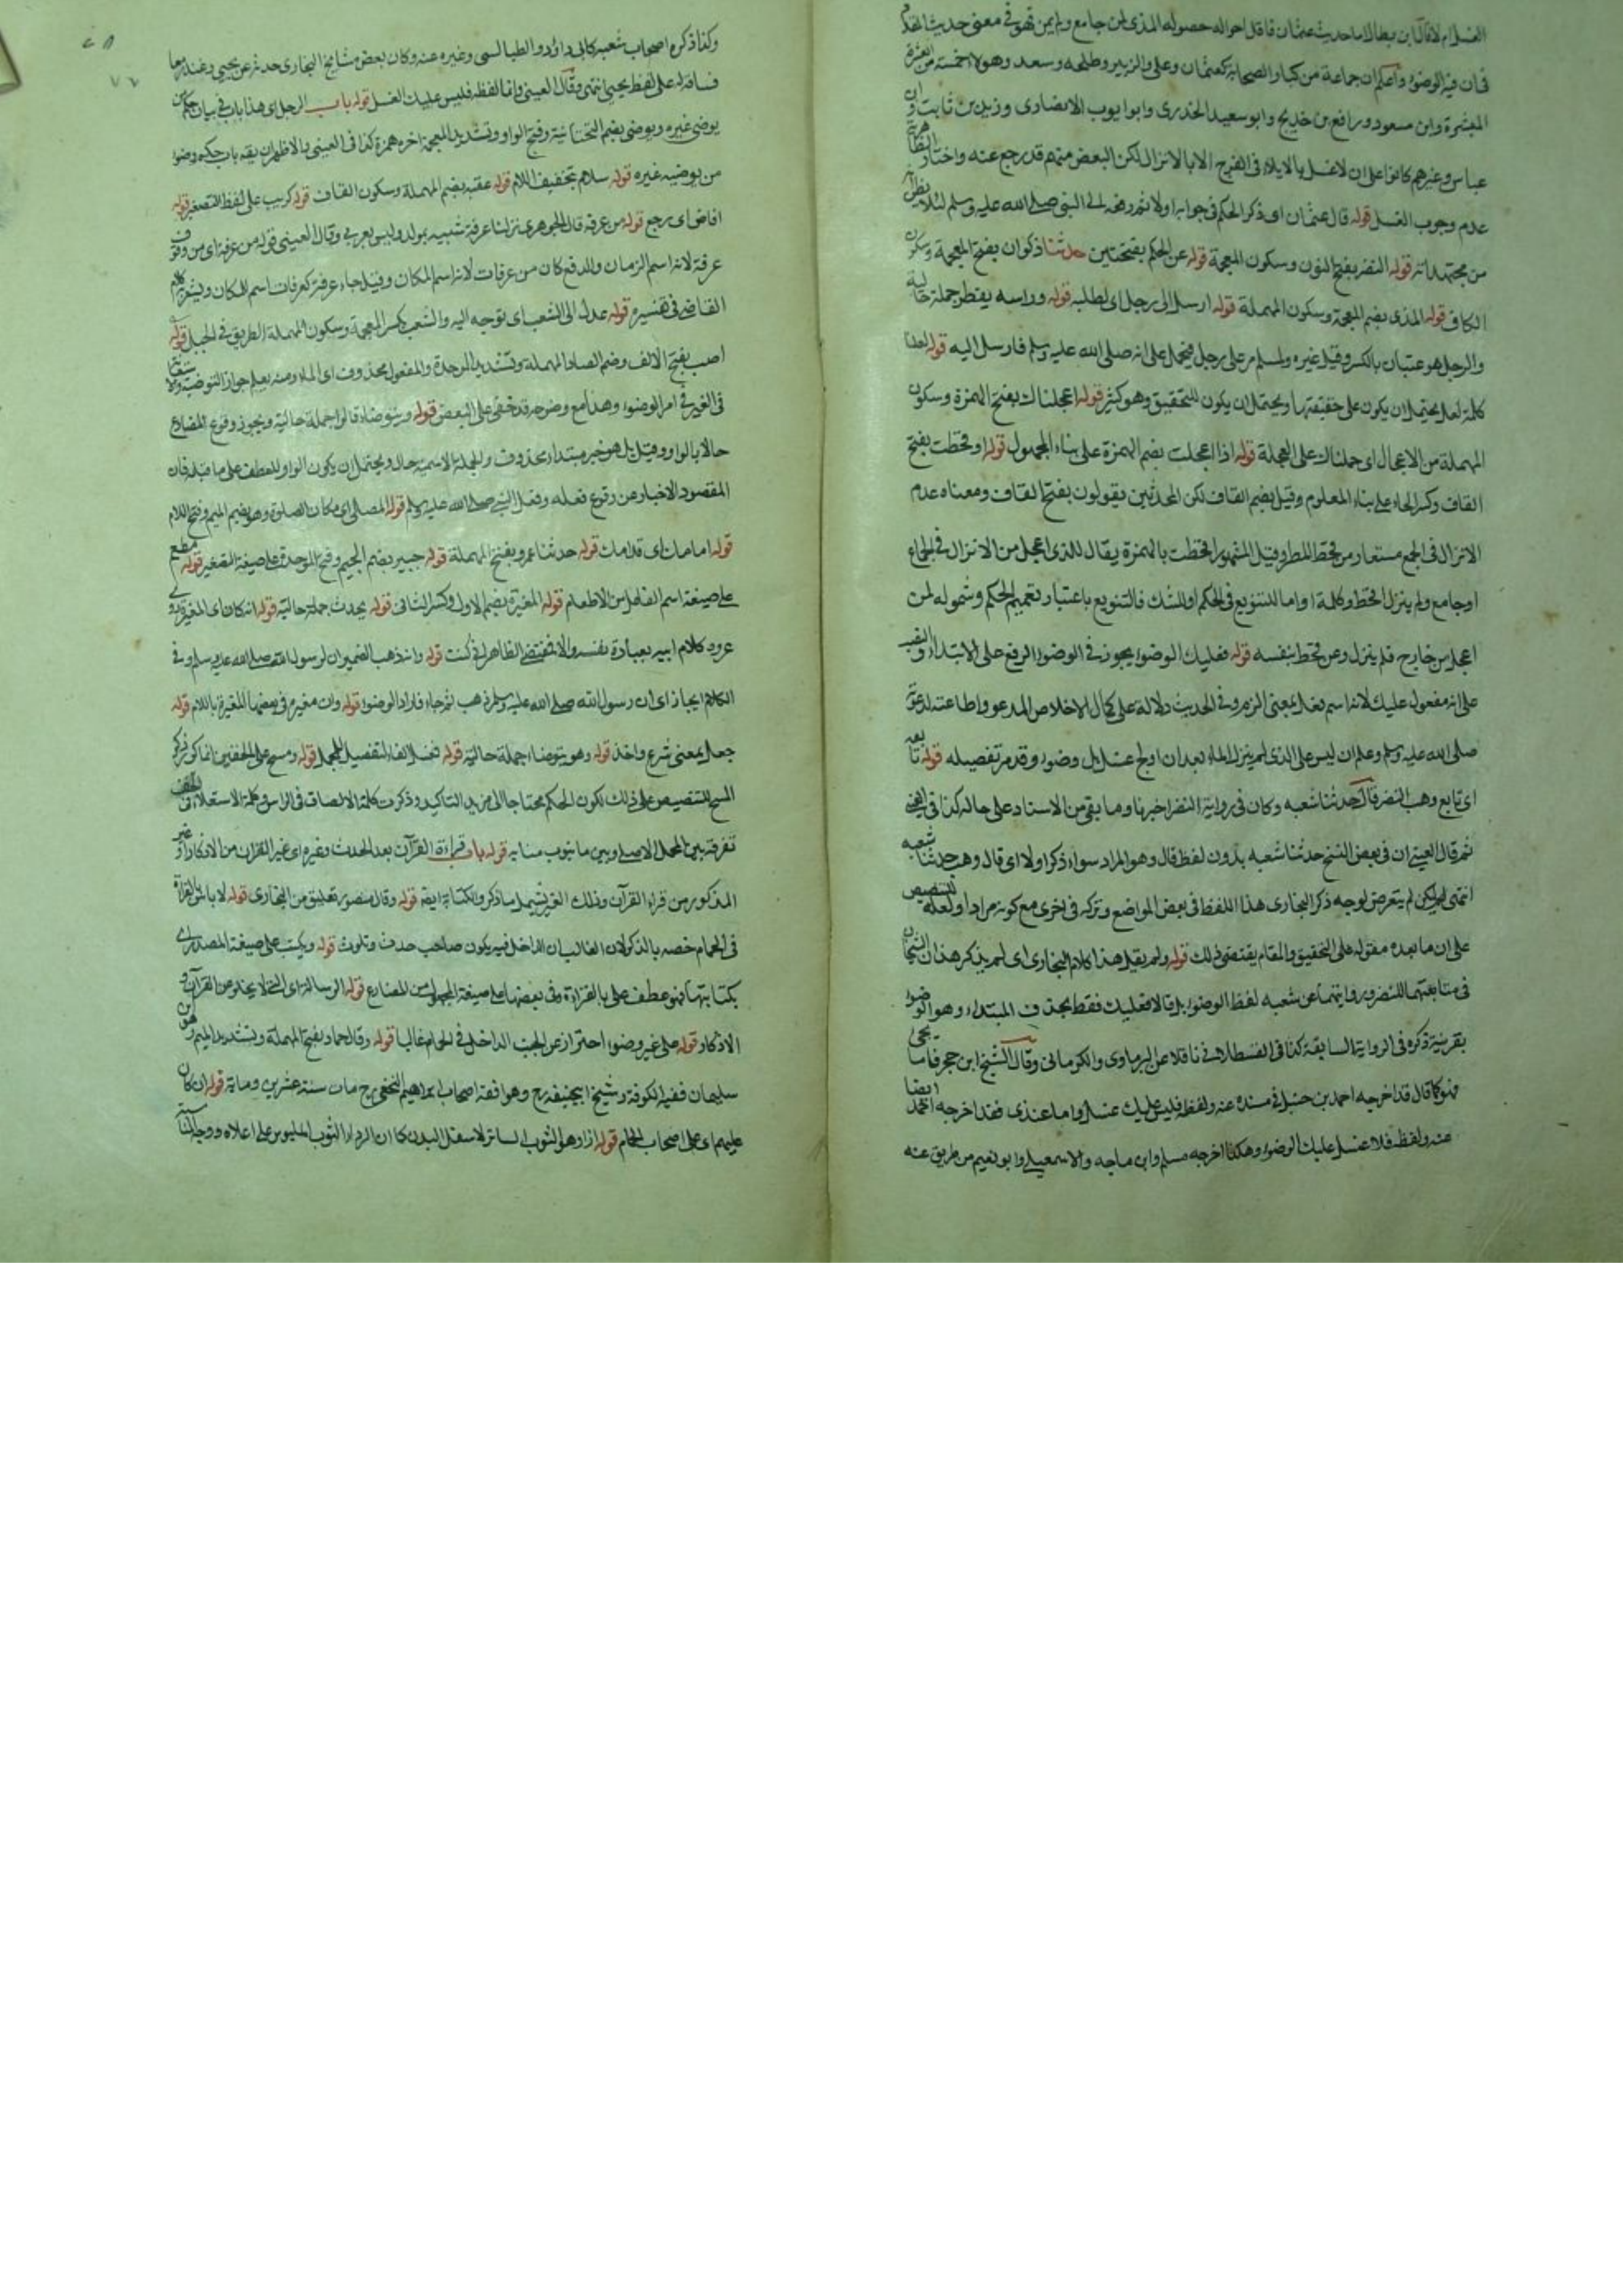 الغسل ام لا قال ابن بطال اما حديث عثمان فاقل احواله حصول المذى لمن جامع ولم يمن فهو فى معنى حديث المقداد
فان فيه الوضوء واعلم ان جماعة من كبار الصحابة كعثمان وعلى والزبير وطلحه وسعد وهولاء خمسة من العشرة
المبشرة وابن مسعود ورافع بن خديج وابو سعيد الخدرى وابو ايوب الانصارى وزيد بن ثابت وابن
عباس وغيرهم كانوا على ان لا غسل بالايلاج فى الفرج الا بالانزال لكن البعض منهم قد رجع عنه واختار
عدم وجوب الغسل قوله قال عثمان اى ذكر الحكم فى جوابه اولا ثم رفعه الى النبى صلى الله عليه وسلم لئلا يظن انه
من مجتهداته قوله النضر بفتح النون وسكون المعجمة قوله عن الحكم بفتحتين حدثنا ذكوان بفتح المعجمة وسكون
الكاف قوله المذى بضم المعجمة وسكون المهملة قوله ارسل الى رجل اى لطلبه قوله وراسه يقطر جملة حالية
والرجل هو عتبان بالكسر وقيل غيره ولمسلم مر على رجل فيحمل على انه صلى الله عليه وسلم مر فارسل اليه قوله لعلنا
كلمة لعل يحتمل ان يكون على حقيقتها ويحتمل ان يكون للتحقيق وهو كثير قوله اعجلناك بفتح الهمزة وسكون
المهملة من الاعجال اى حملناك على العجلة قوله اذا اعجلت بضم الهمزة على بناء المجهول قوله او قحطت بفتح
القاف وكسر الحاء على بناء المعلوم وقيل بضم القاف لكن المحدثين يقولون بفتح القاف ومعناه عدم
الانزال فى الجمع مستعار من قحط المطر وقيل المشهور اقحطت بالهمزة يقال للذى اعجل من الانزال فى الجماع
او جامع ولم ينزل اقحط وكلمة او اما للتنويع فى الحكم او للشك فالتنويع باعتبار تعميم الحكم وشموله لمن
اعجل من خارج فلم ينزل وعن قحط بنفسه قوله فعليك الوضوء يجوز فى الوضوء الرفع على الابتداء والنصب
على انه مفعول عليك لانه اسم فعل بمعنى الزم وفى الحديث دلالة على كمال الاخلاص المدعو واطاعته لدعوته
صلى الله عليه وسلم وعلم ان ليس على الذى لم ينزل الماء بعد ان اولج غسل بل وضوء وقد مر تفصيله قوله تابعه
اى تابع وهب النضر قال حدثنا شعبه وكان فى رواية النضر اخبرنا وما بقى من الاسناد على حاله كذا فى العينى
ثم قال العينى ان فى بعض النسخ حدثنا شعبه بدون لفظ قال وهو المراد سواء ذكر اولا اى قال وهب حدثنا شعبه
انتهى لكن لم يتعرض لوجه ذكر البخارى هذا اللفظ فى بعض المواضع وتركه فى اخرى مع كونه مرادا ولعله للتنصيص
على ان ما بعده مقوله على التحقيق والمقام يقتضى ذلك قوله ولم يقل هذا كلام البخارى اى لم يذكر هذان الشيخان
فى متابعتهما للنضر وروايتهما عن شعبه لفظ الوضوء بل قالا فعليك فقط بحذف المبتداء وهو الوضوء
بقرينة ذكره فى الرواية السابقة كذا فى القسطلانى ناقلا عن البرماوى والكرمانى وقال الشيخ ابن حجر فاما يحيى
فهو كما قال قد اخرجه احمد بن حنبل فى مسنده عنه ولفظه فليس عليك غسل واما غندر فقد اخرجه احمد ايضا
عنه ولفظه فلا غسل عليك الوضوء وهكذا اخرجه مسلم وابن ماجه والاسمعيلى وابو نعيم من طريق عنه
وكذا ذكره اصحاب شعبه كابى داؤد الطيالسى وغيره عنه وكان بعض مشايخ البخارى حدثه عن يحيى وغندر معا
فساقه له على لفظ يحيى انتهى وقال العينى واما لفظه فليس عليك الغسل قوله باب الرجل اى هذا باب فى بيان حكم من
يوضى غيره ويوضى بضم التحتانية وفتح الواو وتشديد المعجمة اخره همزة كذا فى العينى والاظهر ان يقه باب حكم وضوء
من يوضيه غيره قوله سلام بتخفيف اللام قوله عقبه بضم المهملة وسكون القاف قوله كريب على لفظ التصغير قوله
افاض اى رجع قوله من عرفه قال الجوهرى نزلنا عرفة شبيه بمولد وليس بعربى وقال العينى قوله من عرفة اى من وقوف
عرفة لانه اسم الزمان والدفع كان من عرفات لانه اسم المكان وقيل جاء عرفة كعرفات اسم للمكان ويشعر به كلام
القاضى فى تفسيره قوله عدل الى الشعب اى توجه اليه والشعب بكسر المعجمة وسكون المهملة الطريق فى الجبل قوله
اصب بفتح الالف وضم الصاد المهملة وتشديد الموحدة والمفعول محذوف اى الماء ومنه يعلم جواز التوضية والاستعانة
فى الغير فى امر الوضوء وهذا مع وضوحه قد خفى على البعض قوله ويتوضاء قالوا جملة حالية ويجوز وقوع المضارع
حالا بالواو وقيل بل هو خبر مبتدا محذوف والجملة الاسمية حال ويحتمل ان يكون الواو للعطف على ما قبله فان
المقصود الاخبار عن وقوع فعله وفعل النبى صلى الله عليه وسلم قوله المصلى اى مكان الصلوة وهو بضم الميم وفتح اللام
قوله امامك اى قدامك قوله حدثنا عمرو بفتح المهملة قوله جبير بضم الجيم وفتح الموحدة على صيغة التصغير قوله مطعم
على صيغة اسم الفاعل من الاطعام قوله المغيرة بضم الاول وكسر الثانى قوله يحدث جملة حالية قوله انه كان اى المغيرة
عروه كلام ابيه بعبارة نفسه والا فمقتضى الظاهر انى كنت قوله وانه ذهب الضمير ان لرسول الله صلى الله عليه وسلم وفى
الكلام ايجاز اى ان رسول الله صلى الله عليه وسلم ذهب ثم جاء فاراد الوضوء قوله وان مغيرة فى بعضها المغيرة باللام قوله
جعل بمعنى شرع واخذ قوله وهو يتوضاء جملة حالية قوله فغسل الفاء لتفصيل المجمل قوله ومسح على الخفين انما كرر ذكر
المسح للتنصيص على ذلك لكون الحكم محتاجا الى مزيد التاكيد وذكرت كلمة الالصاق فى الراس وكلمة الاستعلاء فى الخف
تفرقة بين المحل الاصلى وبين ما ينوب منابه قوله باب قراءة القرآن بعد الحدث وغيره اى غير القرآن من الاذكار او غير
المذكور من قراءة القرآن وذلك الغير يشمل ما ذكر والكتابة ايضه قوله وقال منصور تعليق من البخارى قوله لا باس بالقراءة
فى الحمام خصه بالذكر لان الغالب ان الداخل فيه يكون صاحب حدث وتلوث قوله ويكتب على صيغة المصدر اى
بكتابتها فهو عطف على بالقراءة وفى بعضها على صيغة المجهول من المضارع قوله الرسالة اى التى لا يخلو من القرآن و
الاذكار قوله على غير وضوء احتراز عن الجنب الداخل فى الحمام غالبا قوله وقال حماد بفتح المهملة وتشديد الميم وهو ابن
سليمان فقيه الكوفة وشيخ ابيحنيفه رح وهو افقه اصحاب ابراهيم النخعى رح مات سنة عشرين وماية قوله ان كان
عليهم اى على اصحاب الحمام قوله ازار هو الثوب الساتر لاسفل البدن كما ان الرداء الثوب الملبوس على اعلاه ووجه المناسبة